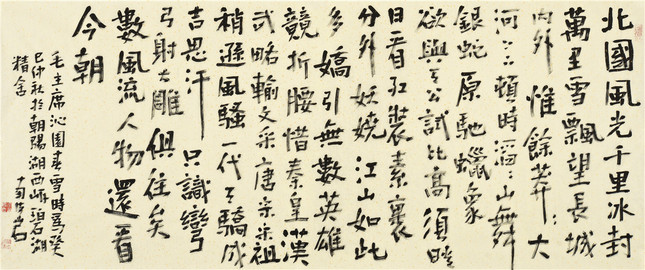 北國風光千里冰封
萬里雪飄望長城
内外惟餘莽〻大
河上下頓時滔〻山舞
銀蛇原馳蠟象
欲與天公試比高須晴
日看紅裝素裹
分外妖嬈江山如此
多嬌引無數英雄
競折腰惜秦皇漢
武略輸文采唐宗宋祖
稍遜風騷一代天驕成
吉思汗只識彎
弓射大雕俱往矣
數風流人物還看
今朝
毛主席沁園春雪時爲癸
巳仲秋於朝陽湖西畔石湖
精舍